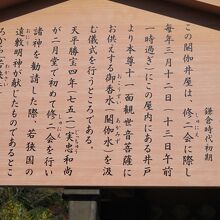 鎌倉時代初期
この閼伽井屋は、修二会に際し
毎年三月十二日(十三日午前
一時過ぎ)にこの屋内にある井戸
より本尊十一面観世音菩薩に
お供えする御香水(閼伽水)を汲
おこうずい
あかみず
む儀式を行うところである。
天平勝宝四年(七五二)実忠和尚
じっちゅう
が二月堂で初めて修二会を行い
諸神を勧請した際、若狭国の
遠敷明神が献じたものであるとこ